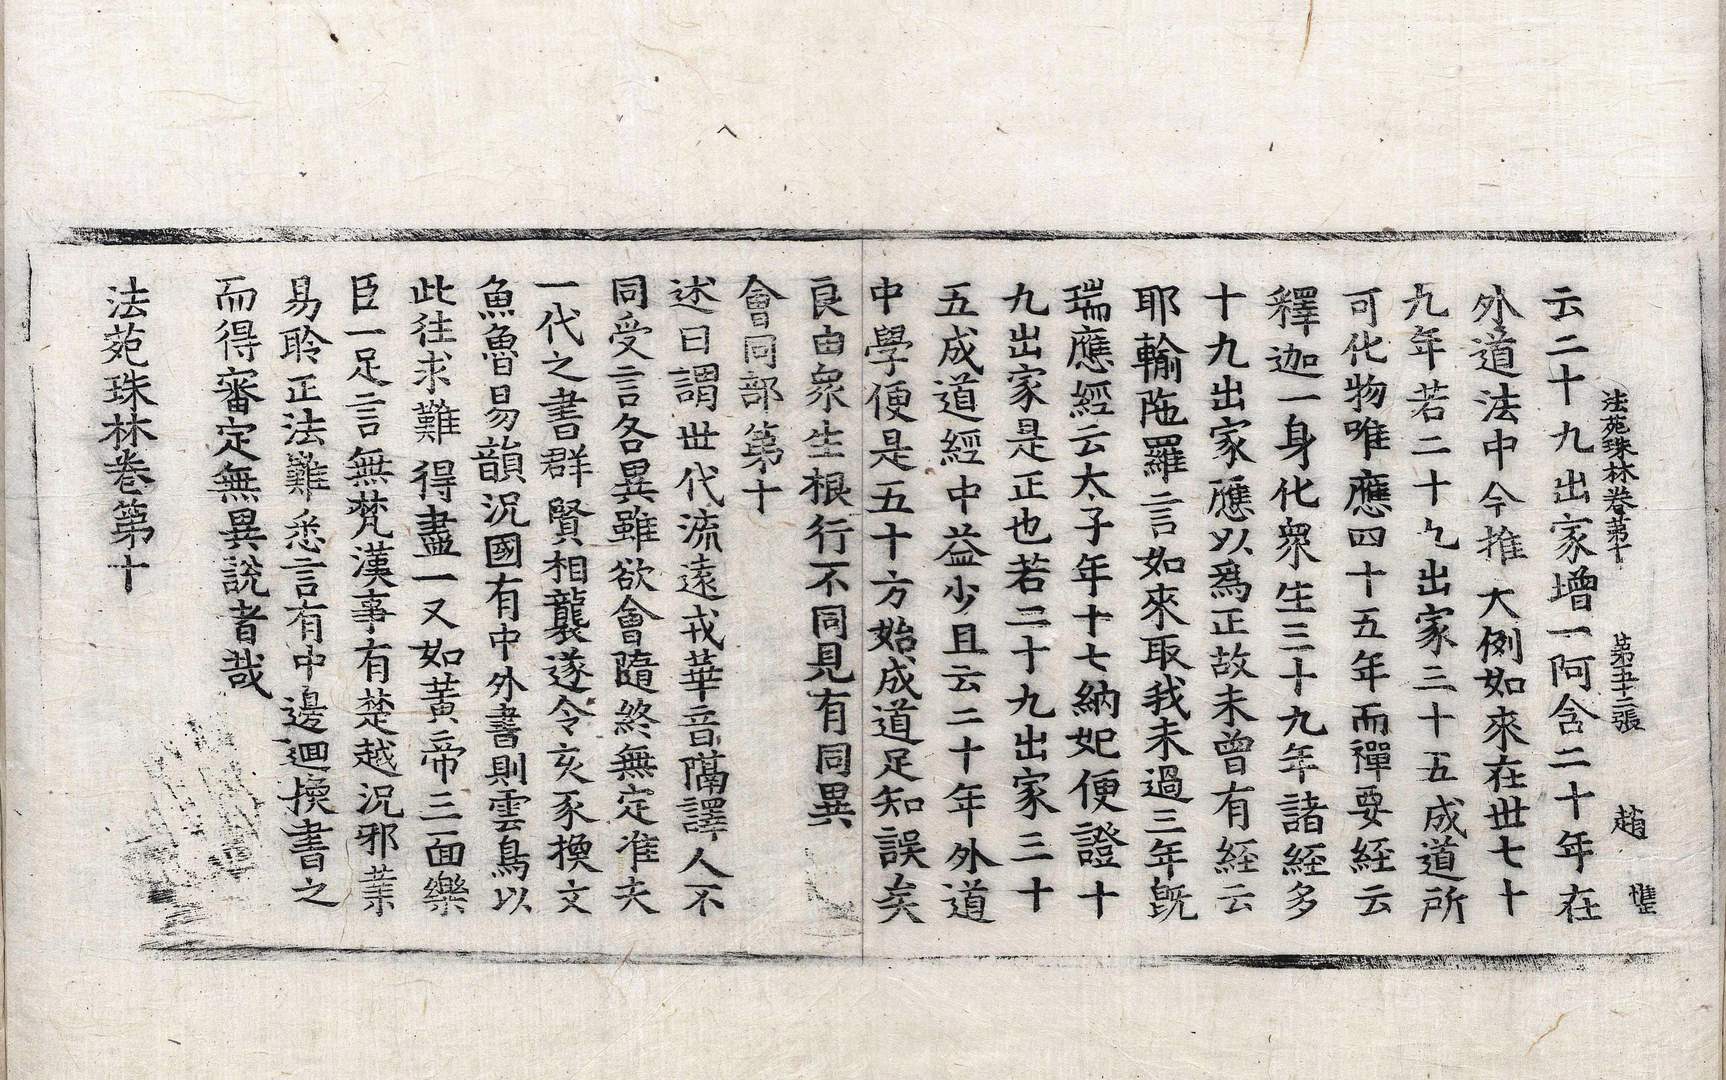 法苑珠林卷第十　第五十二張　趙
云二十九出家增一阿含二十年在
外道法中今推大例如來在世七十
九年若二十九出家三十五成道所
可化物唯應四十五年而禪要経云
釋迦一身化衆生三十九年諸経多
十九出家應以爲正故未曾有経云
耶輸陁羅言如來取我未過三年旣
瑞應經云太子年十七納妃便證十
九出家是正也若二十九出家三十
五成道經中益少且云二十年外道
中學便是五十方始成道足知誤矣
良由衆生根行不同見有同異
會同部第十
述曰謂世代流遠戎華音隔譯人不
同受言各異雖欲會隨終無定准夫
一代之書群賢相襲遂令亥豕換文
魚魯易韻況國有中外書則雲鳥以
此往求難得盡一又如黃帝三面樂
臣一足言無梵漢事有楚越況邪業
易聆正法難悉言有中邊迴換書之
而得審定無異說者哉
法苑珠林卷第十